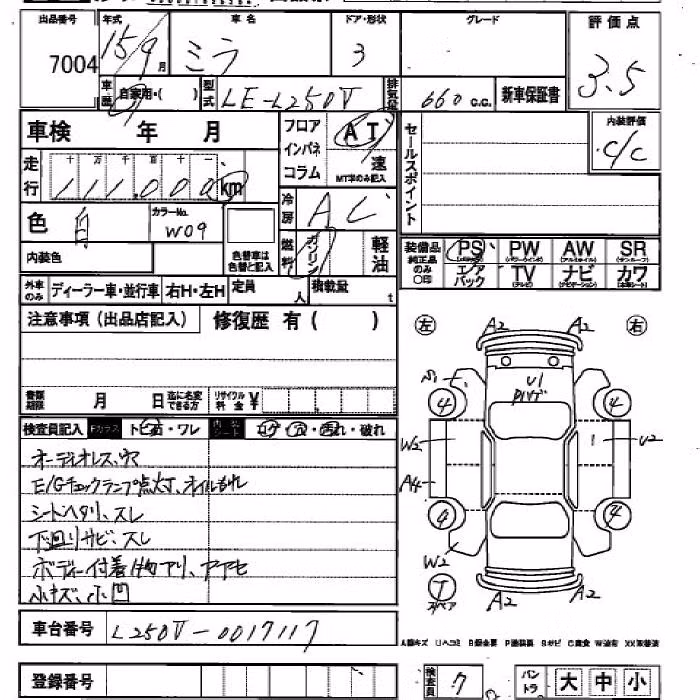 出品番号 年式 車名 ドア・形状 グレード 評価点
7004 15 9月 ミラ 3 3.5
車歴 自家用・( ) 型式 LE-L250V 排気量 660 c.c. 新車保証書
車検 年 月 フロア インパネ コラム AT 速 MT車のみ記入 セールスポイント 内装評価 C/C
走行 十 万 千 百 十 一
111,000 km
冷房 AC
色 白 カラーNo. W09 色替車は色替と記入 燃料 ガソリン 軽油
内装色
装備品 純正品のみ○印 PS PW AW SR
エアバック TV ナビ カワ
外車のみ ディーラー車・並行車 右H・左H 定員 人 積載量 t
注意事項(出品店記入) 修復歴 有( )
左 右
A2 A2
U1
④ ④
W2 U2
A4
④ ④
W2
T
A2 A2
書類期限 月 日 迄に名変できる方 リサイクル料金 ¥
検査員記入 Fガラス トビ石・ワレ
オーディオレス、穴
E/Gチェックランプ点灯、オイルもれ
シートヘタリ、スレ
下回りサビ、スレ
ボディー付着物アリ、アアセ
小キズ、小凹
車台番号 L250V-0017117
登録番号
検査員 ク パントラ 大 中 小